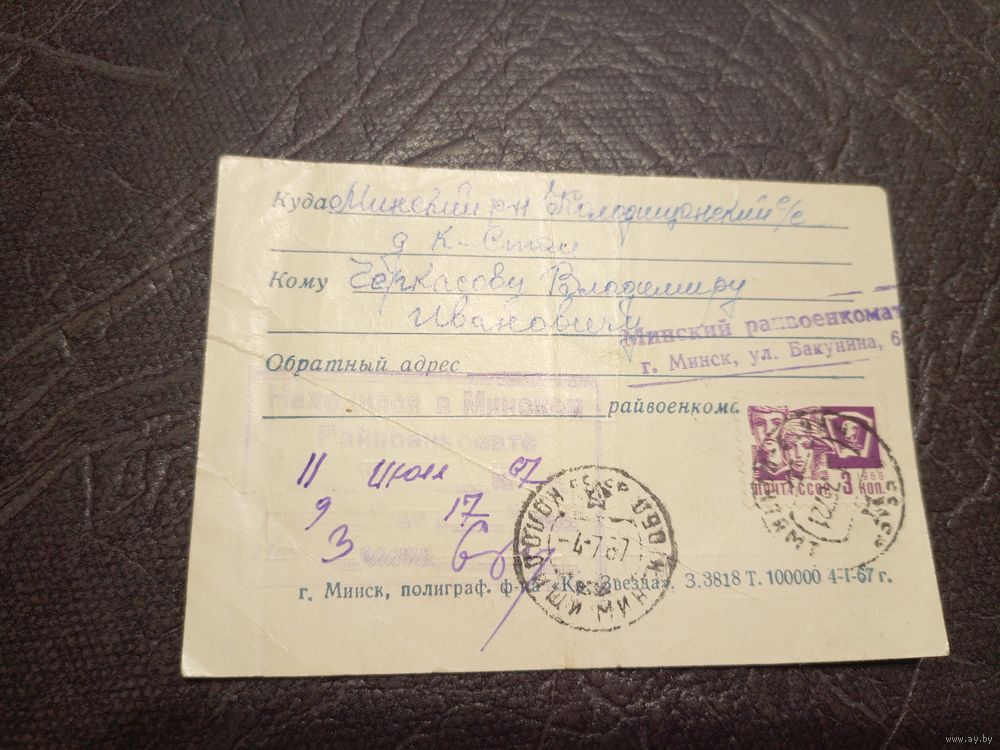 Куда Минский р-н Колодищанский с/с
д К-Стан
Кому Черкасову Владимиру
Ивановичу
Минский райвоенкомат
г. Минск, ул. Бакунина, 6
Обратный адрес
райвоенкома
Находился в Минском
Райвоенкомате
11 Июля 67
9 17
3
ПОЧТА СССР 3 КОП.
1966
-4-7 67
г. Минск, полиграф. ф-ка «Кр. Звезда». З. 3818 Т. 100000 4-I-67 г.
www.ay.by